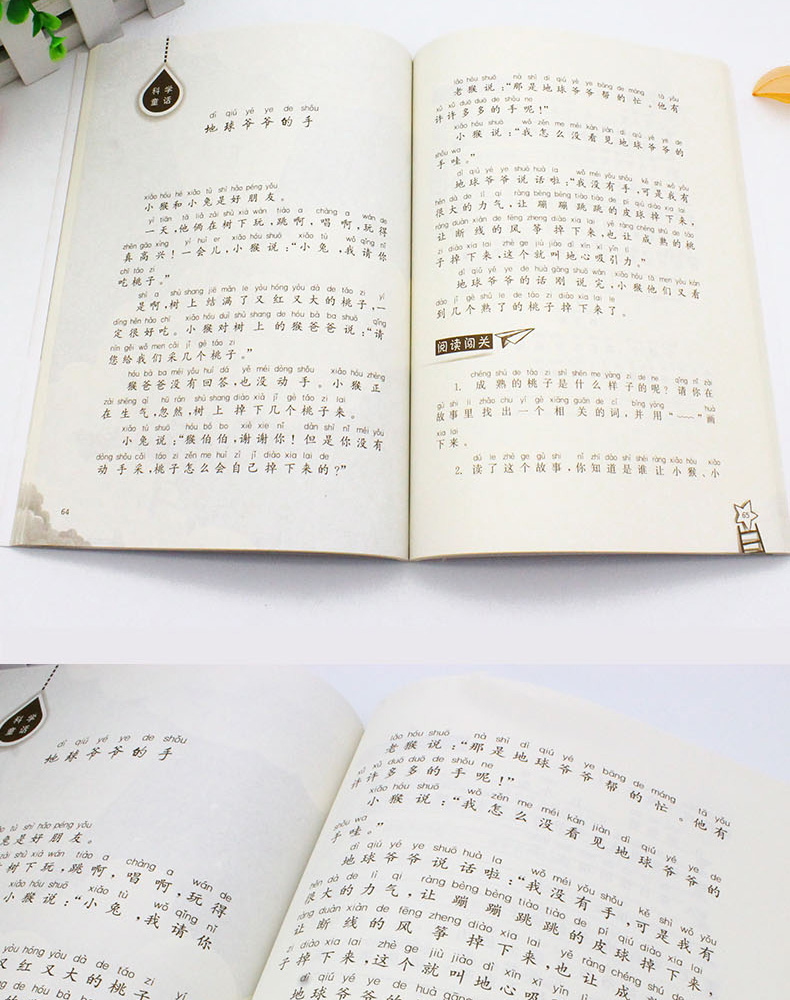 科学
童话
dì qiú yé ye de shǒu
地球爷爷的手
xiǎo hóu hé xiǎo tù shì hǎo péng yǒu
小猴和小兔是好朋友。
yì tiān tā liǎ zài shù xià wán tiào a chàng a wán de
一天,他俩在树下玩,跳啊,唱啊,玩得
zhēn gāo xìng yí huì er xiǎo hóu shuō xiǎo tù wǒ qǐng nǐ
真高兴!一会儿,小猴说:“小兔,我请你
chī táo zi
吃桃子。”
shì a shù shang jiē mǎn le yòu hóng yòu dà de táo zi yí
是啊,树上结满了又红又大的桃子,一
dìng hěn hǎo chī xiǎo hóu duì shù shang de hóu bà ba shuō qǐng
定很好吃。小猴对树上的猴爸爸说:“请
nín gěi wǒ men cǎi jǐ gè táo zi
您给我们采几个桃子。”
hóu bà ba méi yǒu huí dá yě méi dòng shǒu xiǎo hóu zhèng
猴爸爸没有回答,也没动手。小猴正
zài shēng qì hū rán shù shang diào xià jǐ gè táo zi lai
在生气,忽然,树上掉下几个桃子来。
xiǎo tù shuō hóu bó bo xiè xie nǐ dàn shì nǐ méi yǒu
小兔说:“猴伯伯,谢谢你!但是你没有
dòng shǒu cǎi táo zi zěn me huì zì jǐ diào xia lai de
动手采,桃子怎么会自己掉下来的?”
64
lǎo hóu shuō nà shì dì qiú yé ye bāng de máng tā yǒu
老猴说:“那是地球爷爷帮的忙。他有
xǔ xǔ duō duō de shǒu ne
许许多多的手呢!”
xiǎo hóu shuō wǒ zěn me méi kàn jiàn dì qiú yé ye de
小猴说:“我怎么没看见地球爷爷的
shǒu wa
手哇。”
dì qiú yé ye shuō huà la wǒ méi yǒu shǒu kě shì wǒ yǒu
地球爷爷说话啦:“我没有手,可是我有
hěn dà de lì qi ràng bèng bèng tiào tiào de pí qiú diào xia lai
很大的力气,让蹦蹦跳跳的皮球掉下来,
ràng duàn xiàn de fēng zheng diào xia lai yě ràng chéng shú de táo
让断线的风筝掉下来,也让成熟的桃
zi diào xia lai zhè ge jiù jiào dì xīn xī yǐn lì
子掉下来,这个就叫地心吸引力。”
dì qiú yé ye de huà gāng shuō wán xiǎo hóu tā men yòu kàn
地球爷爷的话刚说完,小猴他们又看
dào jǐ gè shú le de táo zi diào xia lai le
到几个熟了的桃子掉下来了。
阅读闯关
chéng shú de táo zi shì shén me yàng zi de ne qǐng nǐ zài
1. 成熟的桃子是什么样子的呢?请你在
gù shi lǐ zhǎo chu yí gè xiāng guān de cí bìng yòng huà
故事里找出一个相关的词,并用“﹏”画
xia lai
下来。
dú le zhè ge gù shi nǐ zhī dào shì shéi ràng xiǎo hóu xiǎo
2. 读了这个故事,你知道是谁让小猴、小
65
科学
童话
dì qiú yé ye de shǒu
地球爷爷的手
tù shì hǎo péng yǒu
兔是好朋友。
zài shù xià wán tiào a chàng a wán de
在树下玩,跳啊,唱啊,玩得
xiǎo hóu shuō xiǎo tù wǒ qǐng nǐ
小猴说:“小兔,我请你
yòu hóng yòu dà de táo zi yí
又红又大的桃子
de hóu bà ba shuō qǐng
lǎo hóu shuō nà shì dì qiú yé ye bāng de máng tā yǒu
老猴说:“那是地球爷爷帮的忙。他有
xǔ xǔ duō duō de shǒu ne
许许多多的手呢!”
xiǎo hóu shuō wǒ zěn me méi kàn jiàn dì qiú yé ye de
小猴说:“我怎么没看见地球爷爷的
shǒu wa
手哇。”
dì qiú yé ye shuō huà la wǒ méi yǒu shǒu kě shì wǒ yǒu
地球爷爷说话啦:“我没有手,可是我有
hěn dà de lì qi ràng bèng bèng tiào tiào de pí qiú diào xia lai
很大的力气,让蹦蹦跳跳的皮球掉下来,
ràng duàn xiàn de fēng zheng diào xia lai yě ràng chéng shú de
让断线的风筝掉下来,也让成
zi diào xia lai zhè ge jiù jiào dì xīn xī yǐn lì
子掉下来,这个就叫地心吸
dì qiú yé ye de huà gāng